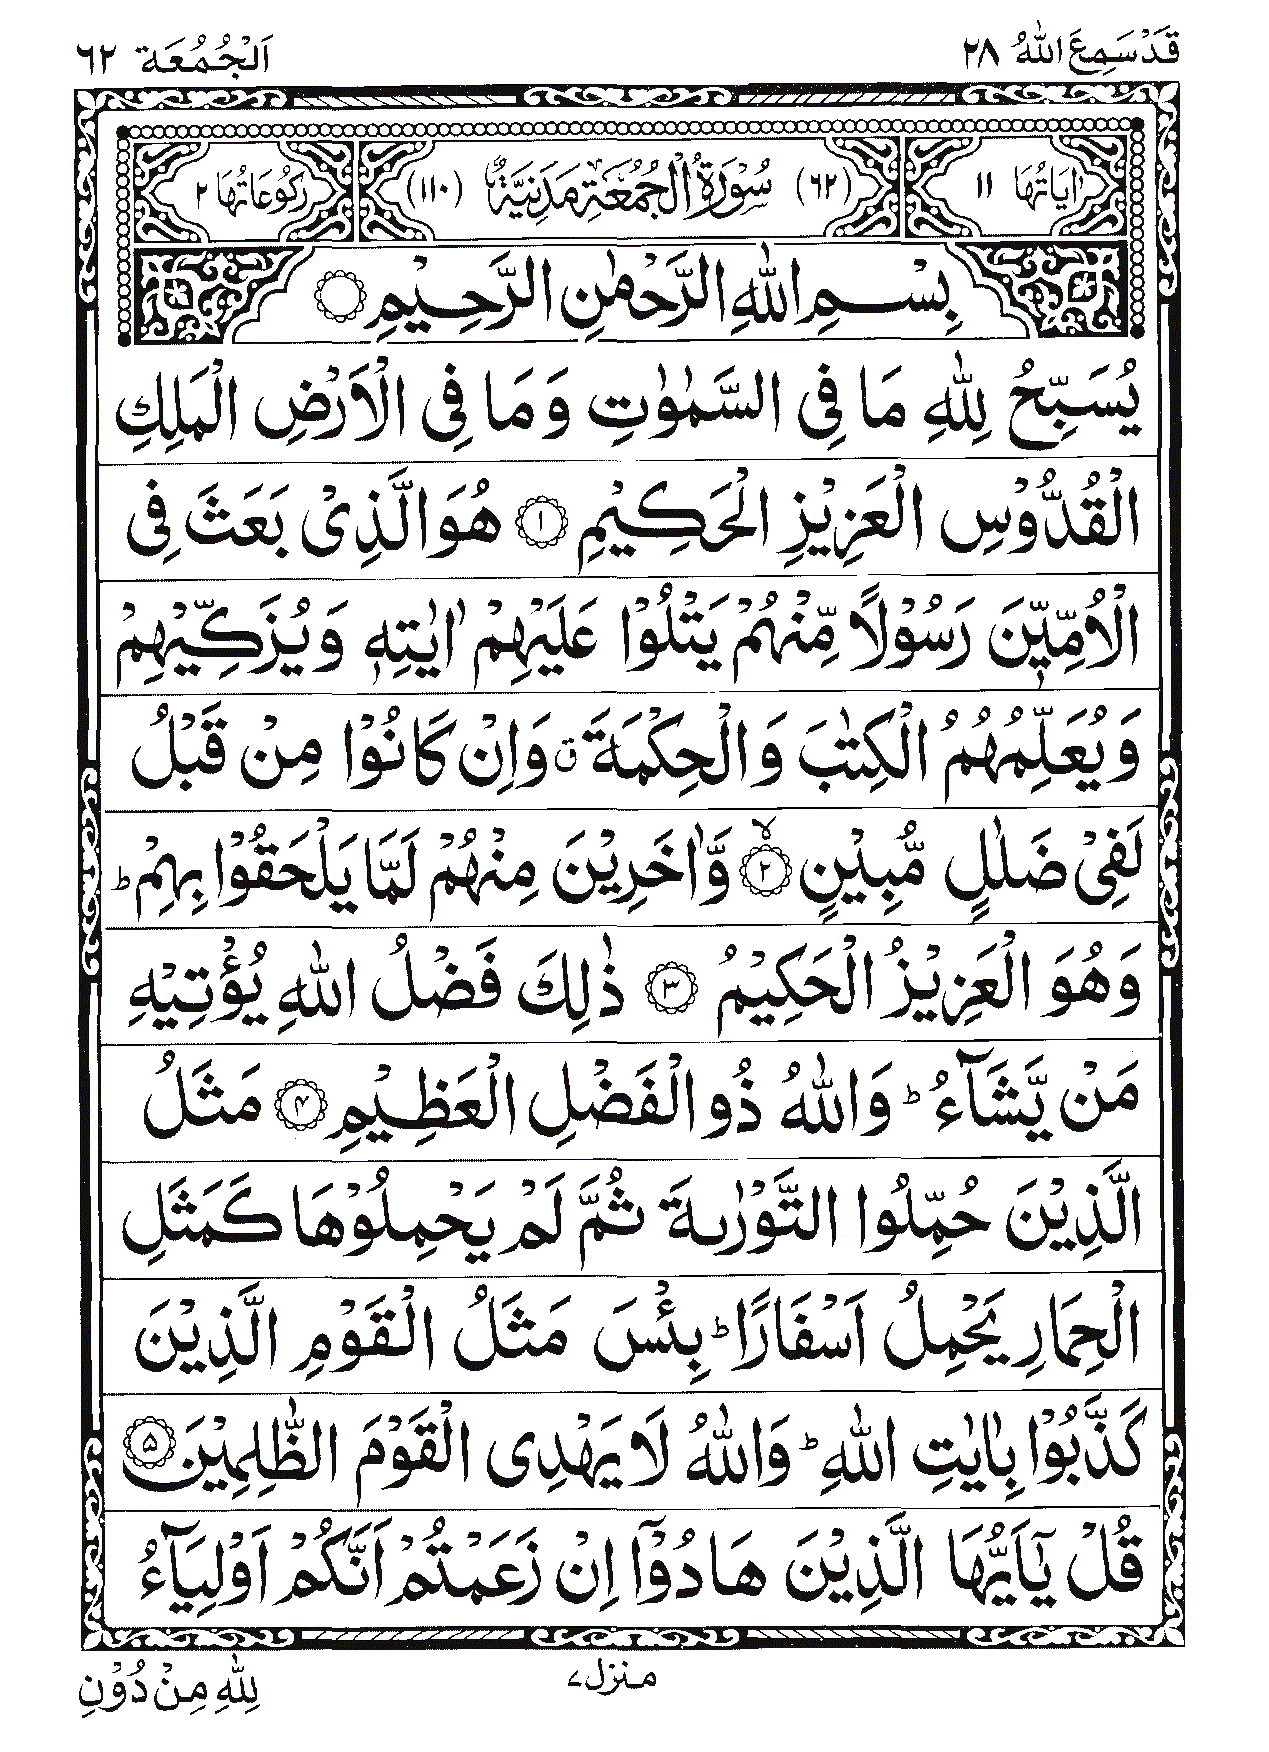 قَدْ سَمِعَ اللّٰهُ ٢٨
اَلْجُمُعَة ٦٢
اٰيَاتُهَا ١١
(٦٢) سُوْرَةُ الْجُمُعَةِ مَدَنِيَّةٌ (١١٠)
رُكُوْعَاتُهَا ٢
بِسْمِ اللّٰهِ الرَّحْمٰنِ الرَّحِيْمِ ۝
يُسَبِّحُ لِلّٰهِ مَا فِى السَّمٰوٰتِ وَ مَا فِى الْاَرْضِ الْمَلِكِ
الْقُدُّوْسِ الْعَزِيْزِ الْحَكِيْمِ ۝١ هُوَ الَّذِىْ بَعَثَ فِى
الْاُمِّيّٖنَ رَسُوْلًا مِّنْهُمْ يَتْلُوْا عَلَيْهِمْ اٰيٰتِهٖ وَ يُزَكِّيْهِمْ
وَ يُعَلِّمُهُمُ الْكِتٰبَ وَ الْحِكْمَةَ ق وَ اِنْ كَانُوْا مِنْ قَبْلُ
لَفِىْ ضَلٰلٍ مُّبِيْنٍ ۝٢ۙ وَّ اٰخَرِيْنَ مِنْهُمْ لَمَّا يَلْحَقُوْا بِهِمْ ؕ
وَ هُوَ الْعَزِيْزُ الْحَكِيْمُ ۝٣ ذٰلِكَ فَضْلُ اللّٰهِ يُؤْتِيْهِ
مَنْ يَّشَآءُ ؕ وَ اللّٰهُ ذُو الْفَضْلِ الْعَظِيْمِ ۝۴ مَثَلُ
الَّذِيْنَ حُمِّلُوا التَّوْرٰىةَ ثُمَّ لَمْ يَحْمِلُوْهَا كَمَثَلِ
الْحِمَارِ يَحْمِلُ اَسْفَارًا ؕ بِئْسَ مَثَلُ الْقَوْمِ الَّذِيْنَ
كَذَّبُوْا بِاٰيٰتِ اللّٰهِ ؕ وَ اللّٰهُ لَا يَهْدِى الْقَوْمَ الظّٰلِمِيْنَ ۝۵
قُلْ يٰۤاَيُّهَا الَّذِيْنَ هَادُوْۤا اِنْ زَعَمْتُمْ اَنَّكُمْ اَوْلِيَآءُ
منزل ٧
لِلّٰهِ مِنْ دُوْنِ